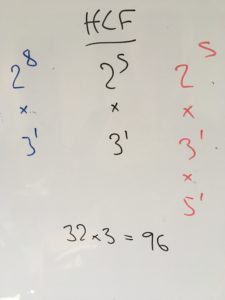 HCF
2⁸ 2⁵ 2⁵
× × ×
3¹ 3¹ 3¹
×
5¹
32 × 3 = 96